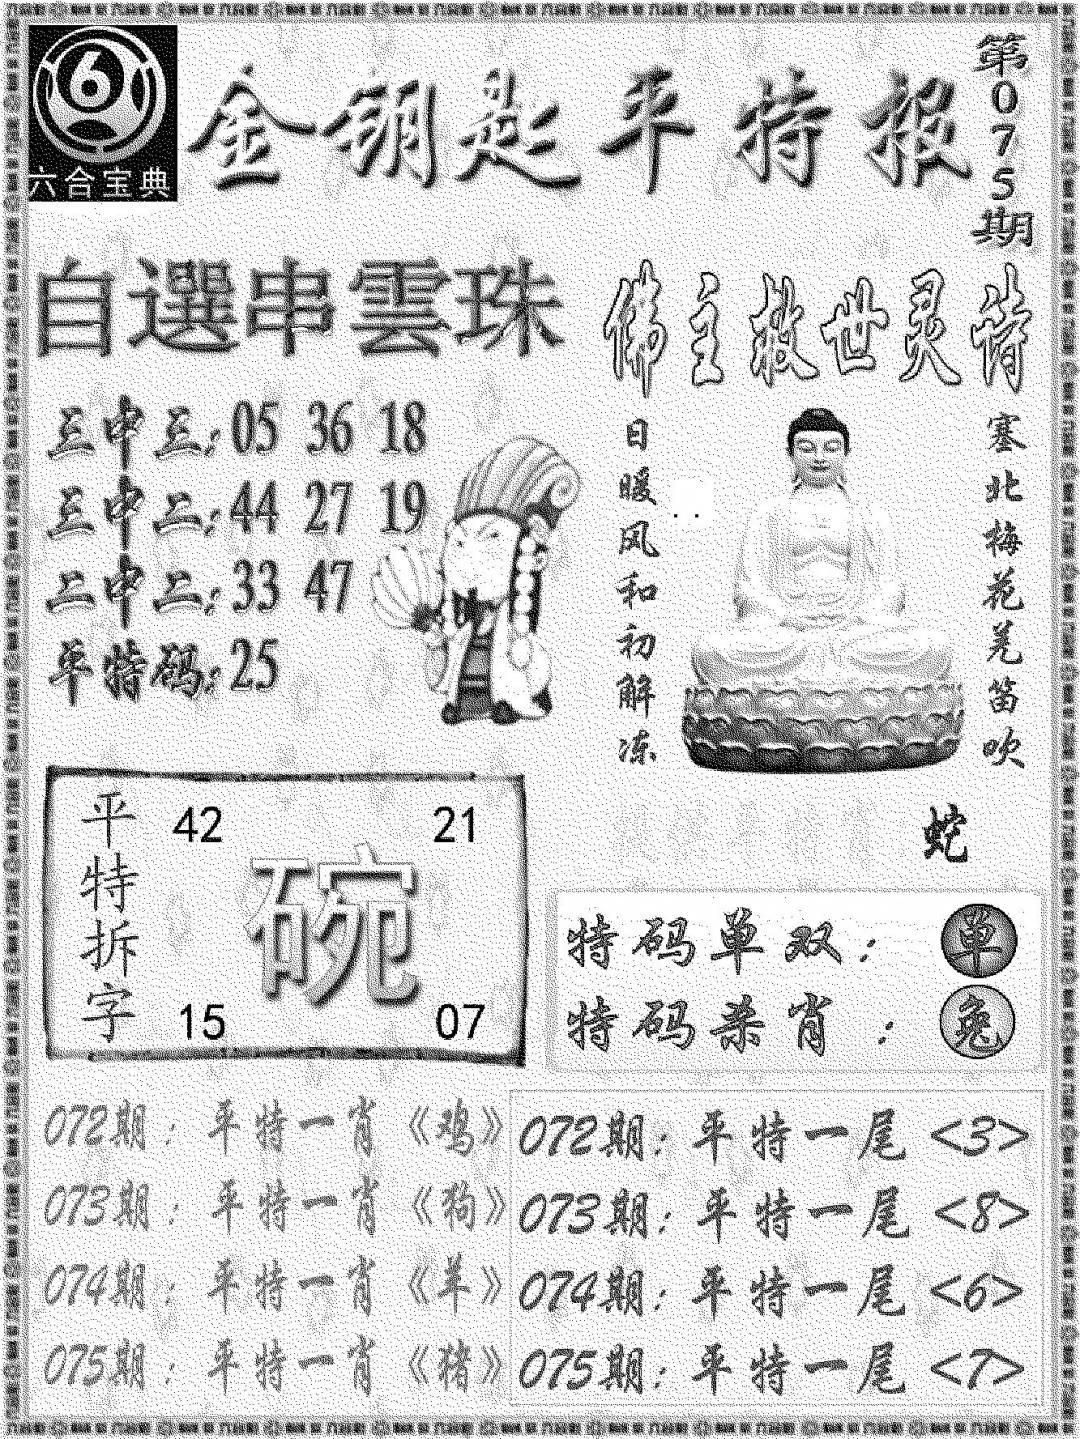 6
六合宝典
金钥匙平特报
第075期
自選串雲珠
三中三: 05 36 18
三中二: 44 27 19
二中二: 33 47
单特码: 25
佛主救世灵诗
塞北梅花羌笛吹
日暖风和初解冻
蛇
平特拆字
42 21
碗
15 07
特码单双: 单
特码杀肖: 兔
072期: 平特一肖《鸡》
073期: 平特一肖《狗》
074期: 平特一肖《羊》
075期: 平特一肖《猪》
072期: 平特一尾 <3>
073期: 平特一尾 <8>
074期: 平特一尾 <6>
075期: 平特一尾 <7>